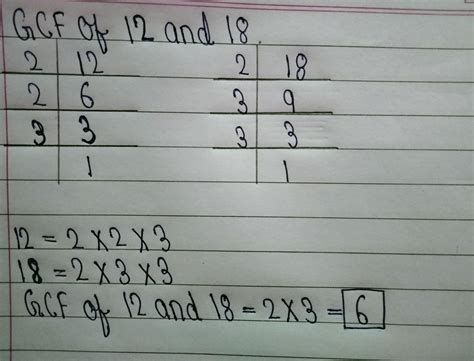 GCF of 12 and 18.
2 | 12 2 | 18
2 | 6 3 | 9
3 | 3 3 | 3
| 1 | 1
12 = 2 X 2 X 3
18 = 2 X 3 X 3
GCF of 12 and 18 = 2 X 3 = 6